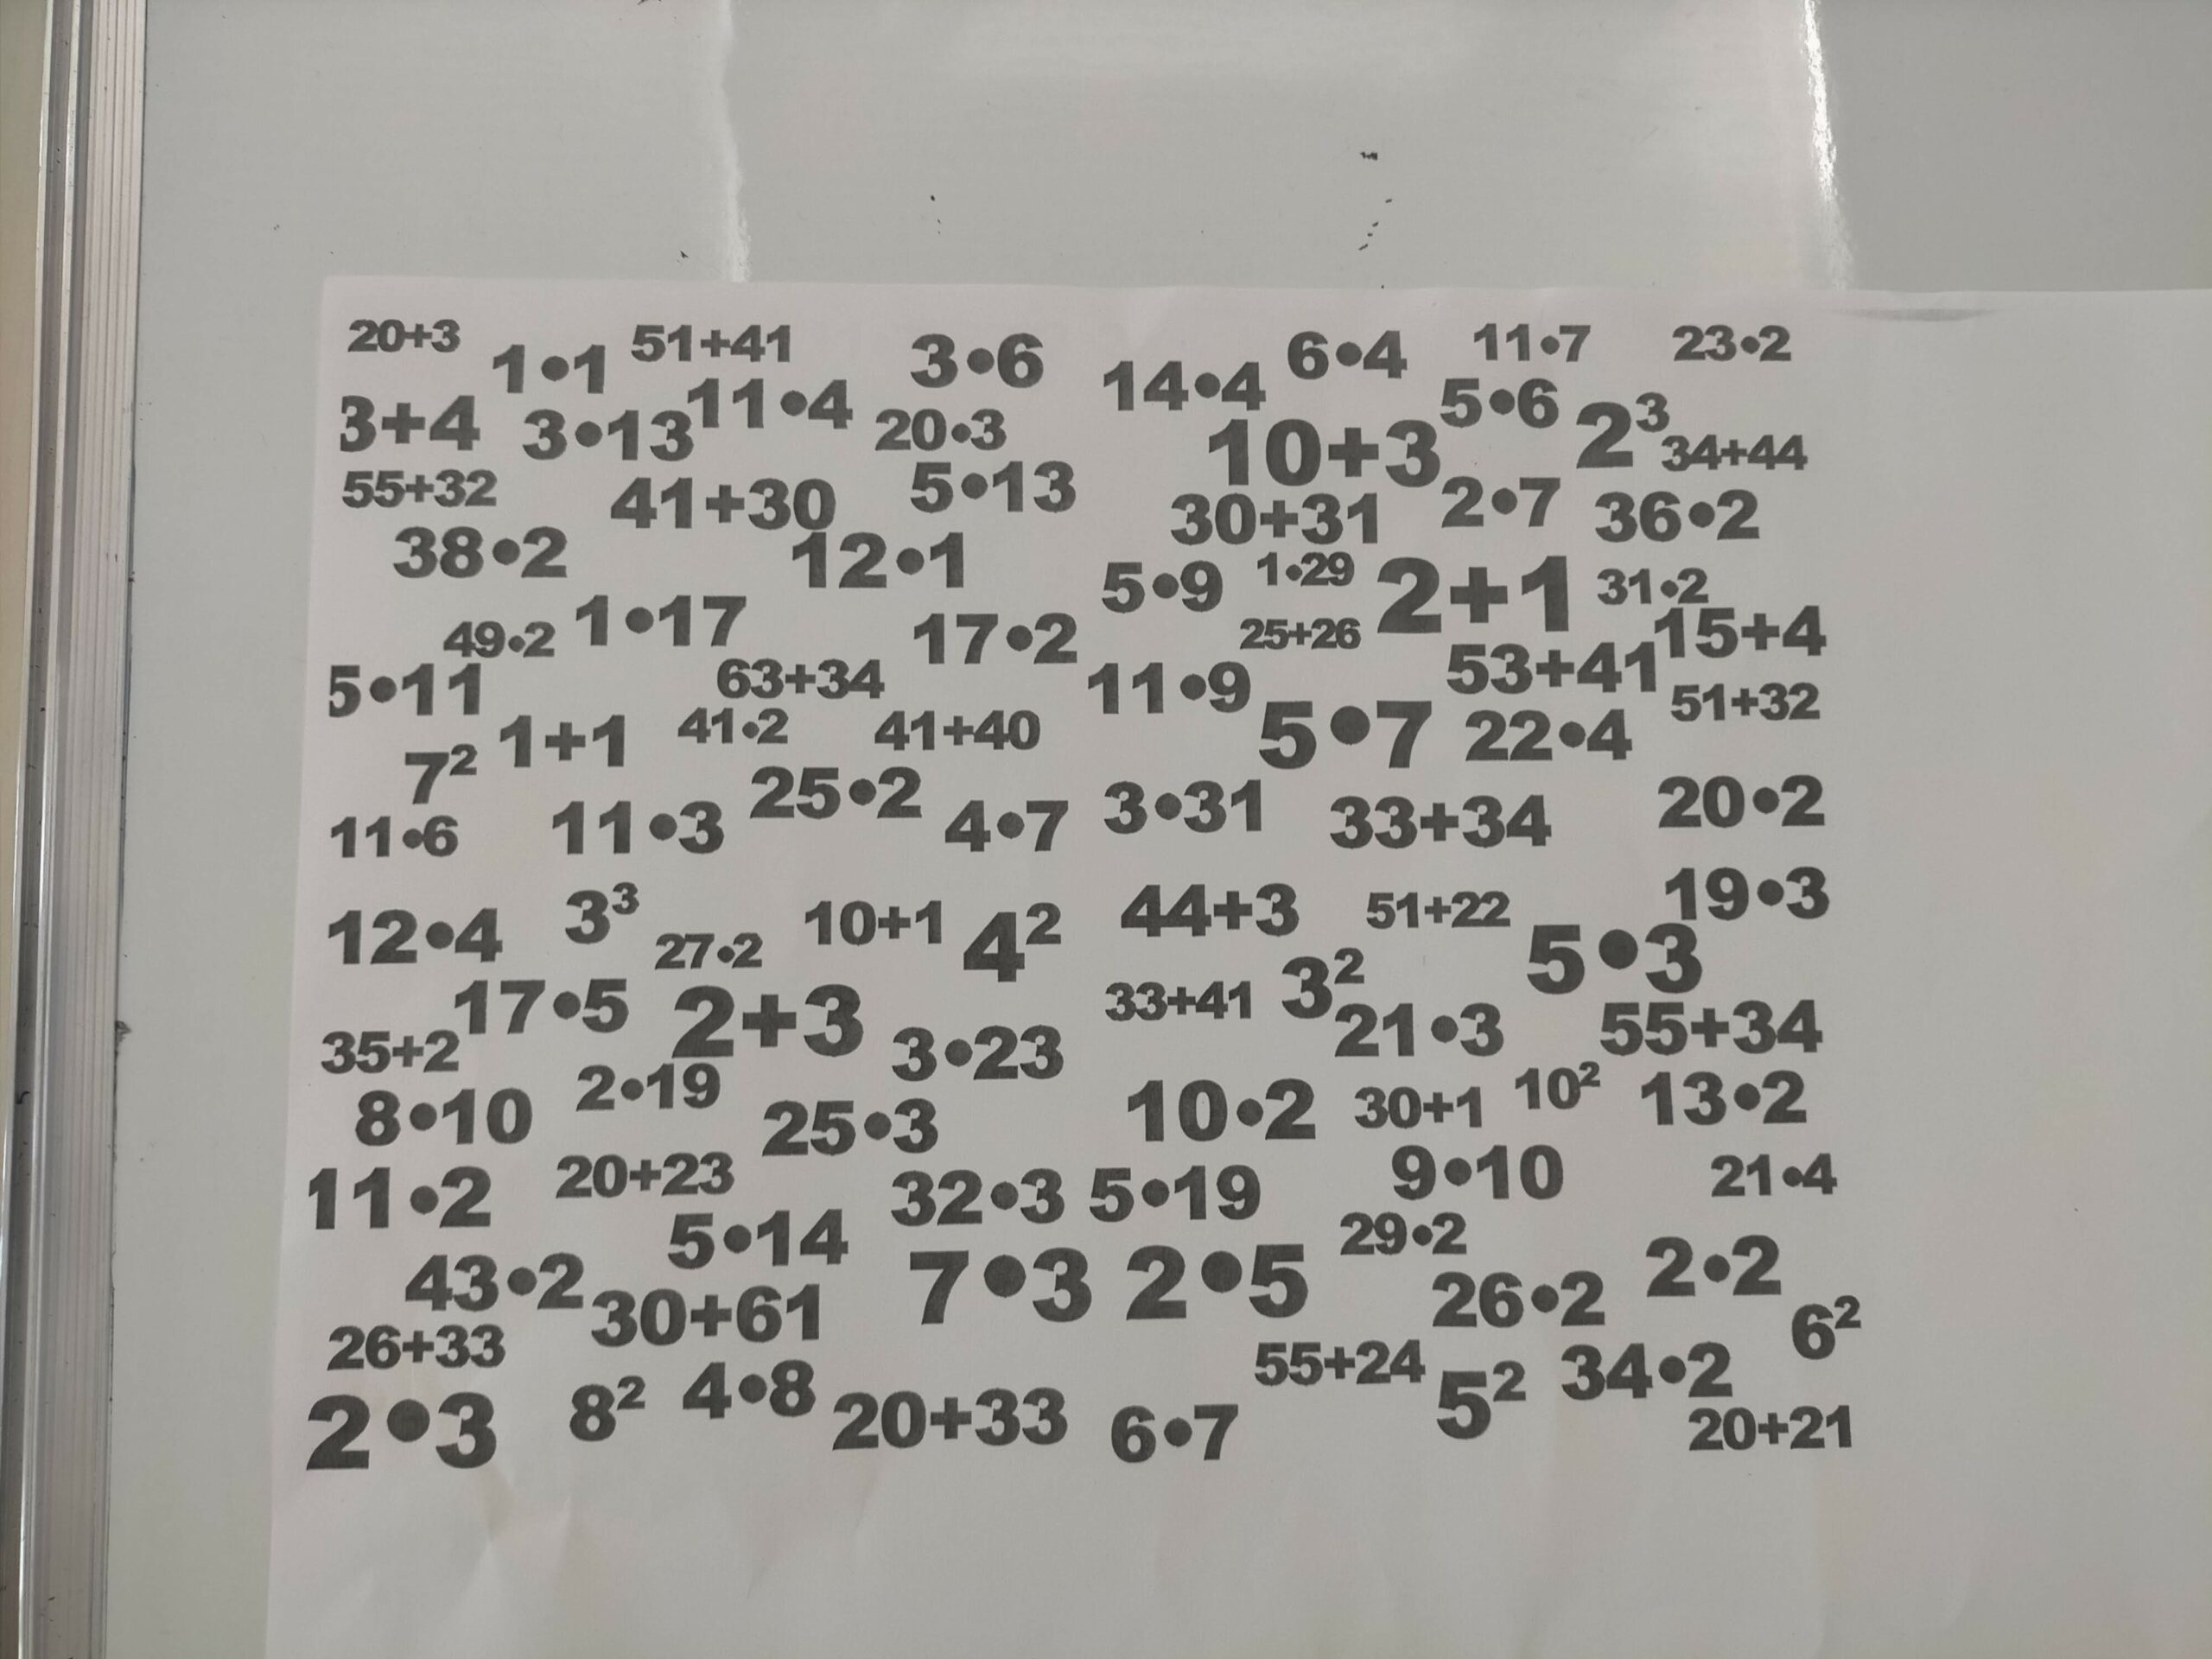 20+3 1•1 51+41 3•6 14•4 6•4 11•7 23•2
3+4 3•13 11•4 20•3 10+3 5•6 2³ 34+44
55+32 41+30 5•13 30+31 2•7 36•2
38•2 12•1 5•9 1•29 2+1 31•2
49•2 1•17 17•2 25+26 53+41 15+4
5•11 63+34 11•9 51+32
7² 1+1 41•2 41+40 5•7 22•4
11•6 11•3 25•2 4•7 3•31 33+34 20•2
12•4 3³ 27•2 10+1 4² 44+3 51+22 19•3
17•5 2+3 33+41 3² 5•3
35+2 3•23 21•3 55+34
8•10 2•19 25•3 10•2 30+1 10² 13•2
11•2 20+23 32•3 5•19 9•10 21•4
43•2 5•14 7•3 2•5 29•2 26•2 2•2
26+33 30+61 55+24 34•2 6²
2•3 8² 4•8 20+33 6•7 5² 20+21